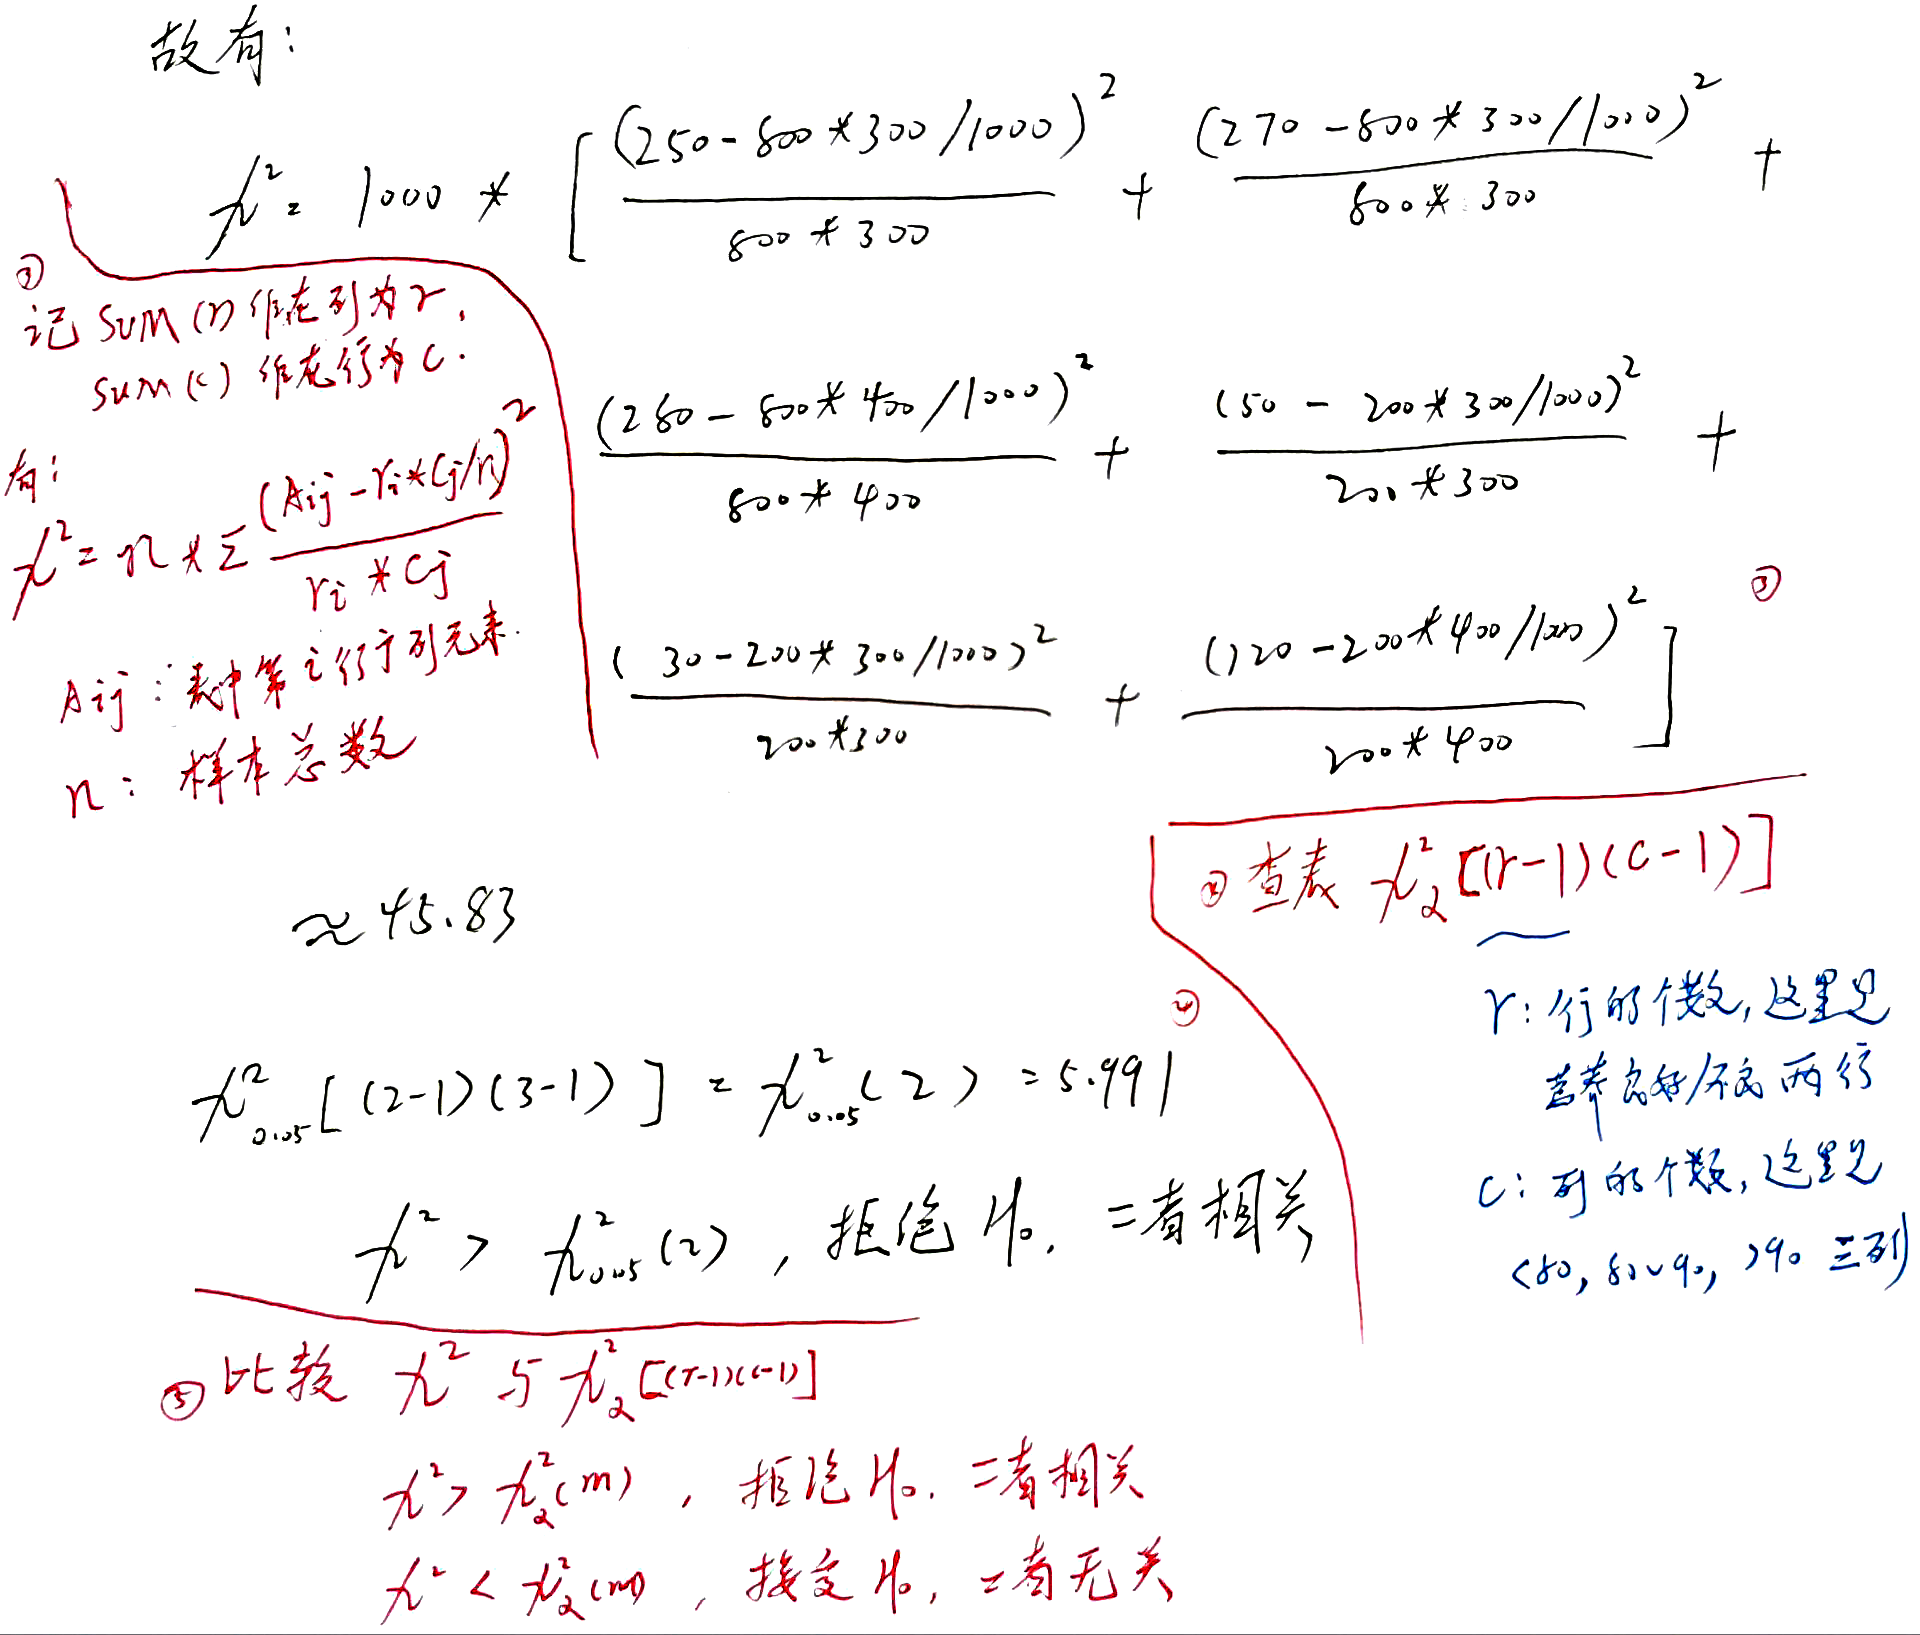 故有:
χ² = 1000 * [ (250-800*300/1000)² / 800*300 + (270-800*300/1000)² / 800*300 +
(280-800*400/1000)² / 800*400 + (50-200*300/1000)² / 200*300 +
(30-200*300/1000)² / 200*300 + (120-200*400/1000)² / 200*400 ]
③
记 SUM(r) 所在列为r,
SUM(c) 所在行为c.
有:
χ² = n * Σ (Aij - ri*cj/n)² / ri * cj
Aij: 表中第i行j列元素.
n: 样本总数
③
≈ 45.83
④ 查表 χ²α [(r-1)(c-1)]
r: 行的个数, 这里是
营养良好/不良 两行
c: 列的个数, 这里是
<80, 80~90, >90 三列
④
χ²0.05 [(2-1)(3-1)] = χ²0.05(2) = 5.991
χ² > χ²0.05(2), 拒绝H₀, 二者相关
⑤ 比较 χ² 与 χ²α [(r-1)(c-1)]
χ² > χ²α(m), 拒绝H₀, 二者相关
χ² < χ²α(m), 接受H₀, 二者无关